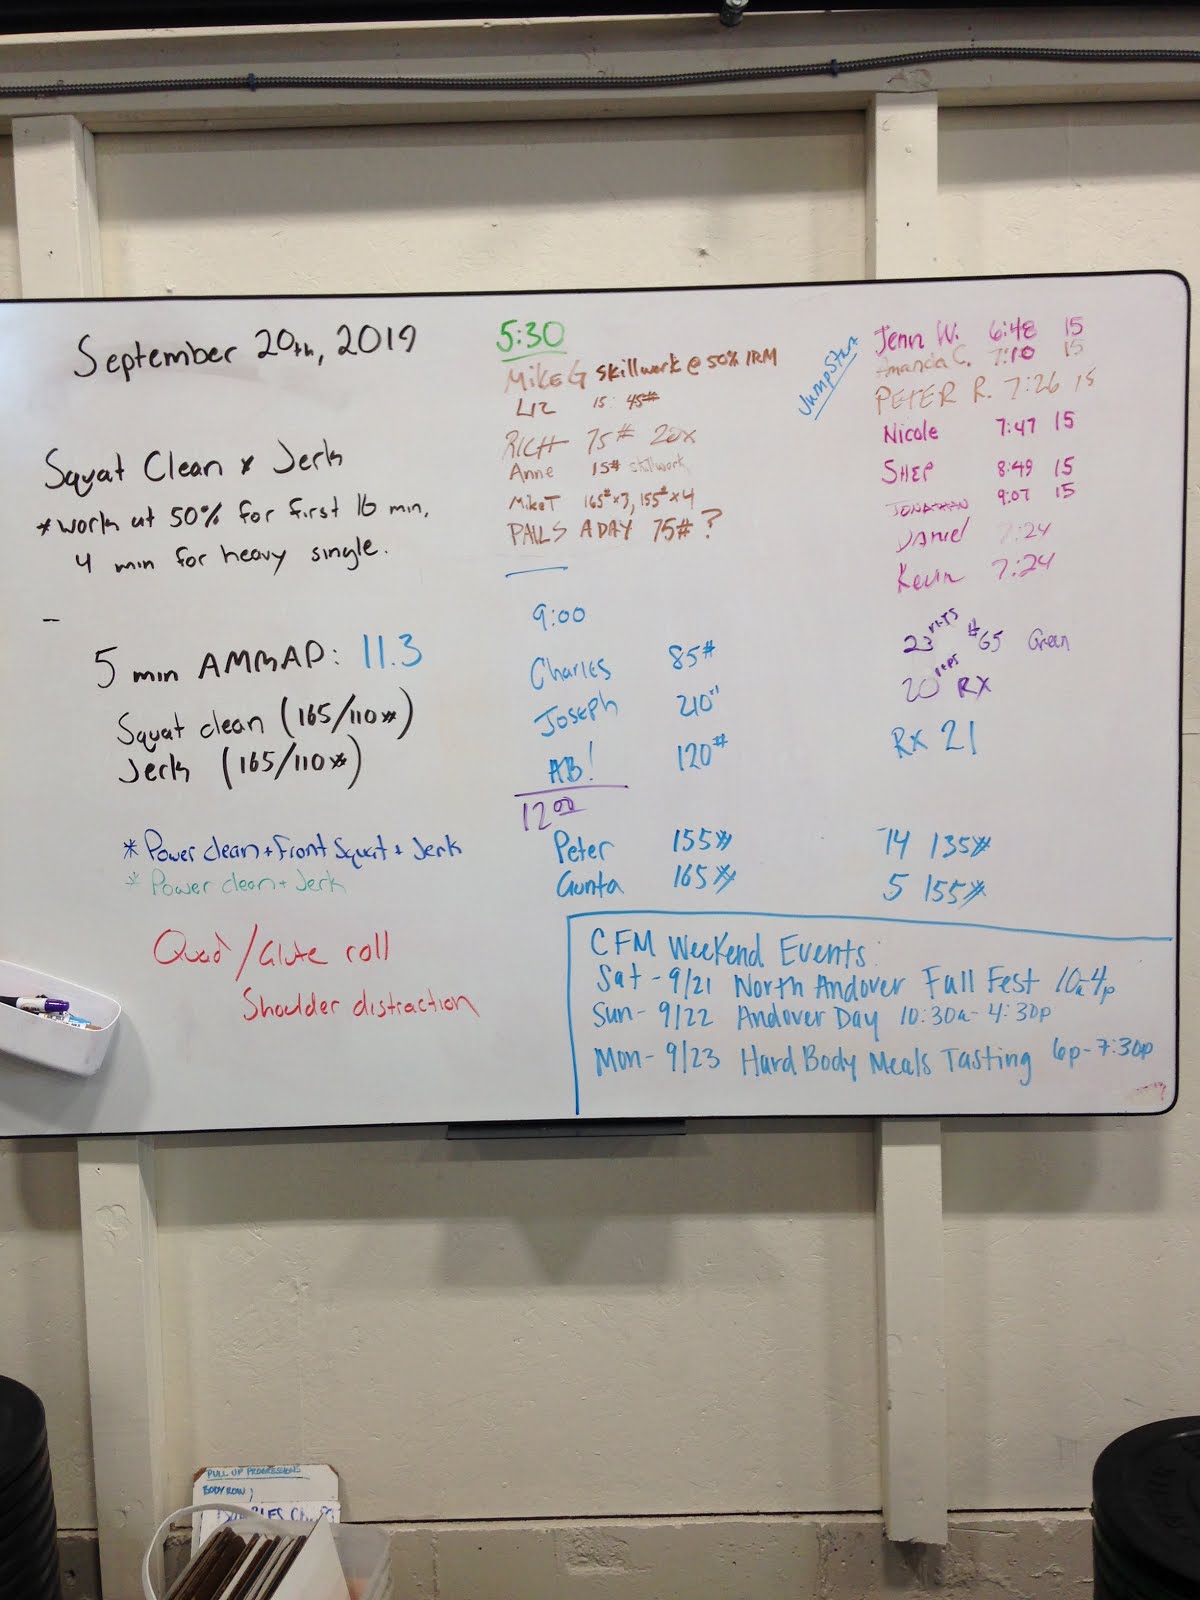 September 20th, 2019
Squat Clean & Jerk
*work at 50% for first 16 min,
4 min for heavy single.
5 min AMRAP: 11.3
Squat clean (165/110#)
Jerk (165/110#)
* Power clean + Front Squat + Jerk
* Power clean + Jerk
Quad / Glute roll
Shoulder distraction
5:30
Mike G skillwork @ 50% 1RM
Liz 15 45#
RICH 75# 20x
Anne 15# skillwork
Mike T 165#x3, 155#x4
PAILS A DAY 75# ?
9:00
Charles 85# 23 #65 Green
Joseph 210" 20 RX
AB! 120# RX 21
12:00
Peter 155# 14 135#
Gunta 165# 5 155#
JumpStart
Jenn W. 6:48 15
Amanda C. 7:10 15
PETER R. 7:26 15
Nicole 7:47 15
SHEP 8:49 15
JONATHAN 9:07 15
Daniel 7:24
Kevin 7:24
CFM Weekend Events:
Sat - 9/21 North Andover Fall Fest 10a-4p
Sun - 9/22 Andover Day 10:30a - 4:30p
Mon - 9/23 Hard Body Meals Tasting 6p - 7:30p
PULL UP PROGRESSIONS
BODY ROW